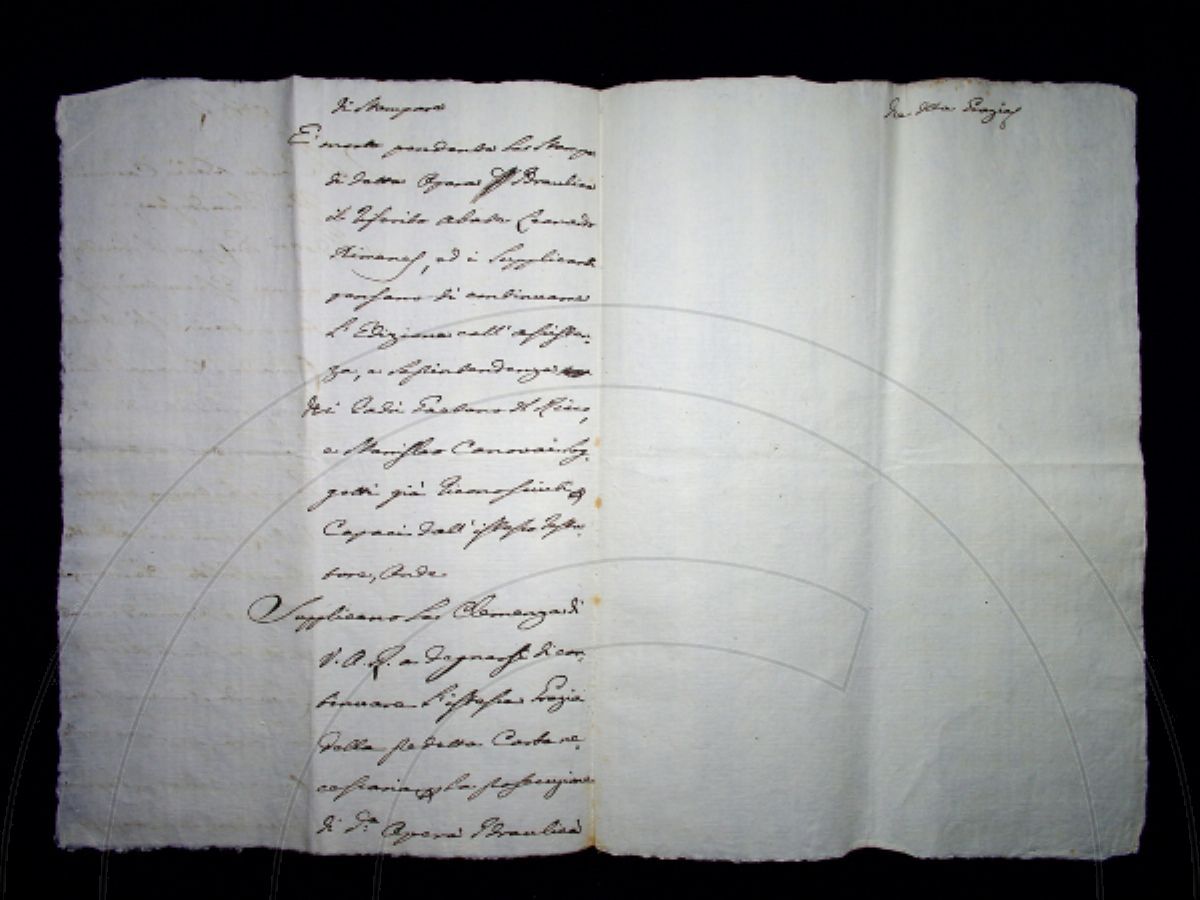 di Stampare
E' morto pendente la Stampa
di detta Opera Idraulica
il riferito Abate Leonardo
Ximenes, ed i Supplicanti
pensano di continuare
l'Edizione coll'assisten-
za, e Soprintendenza
dei Padri Gaetano del Ricco,
e Stanislao Canovai Sog-
getti già riconosciuti
Capaci dall'istesso Testa-
tore, Onde
Supplicano la Clemenza di
V. A. R. a degnarsi di con-
tinuare l'istessa Grazia
della predetta Carta ne-
cessaria per la prosecuzione
di d.a Opera Idraulica
Che della Grazia